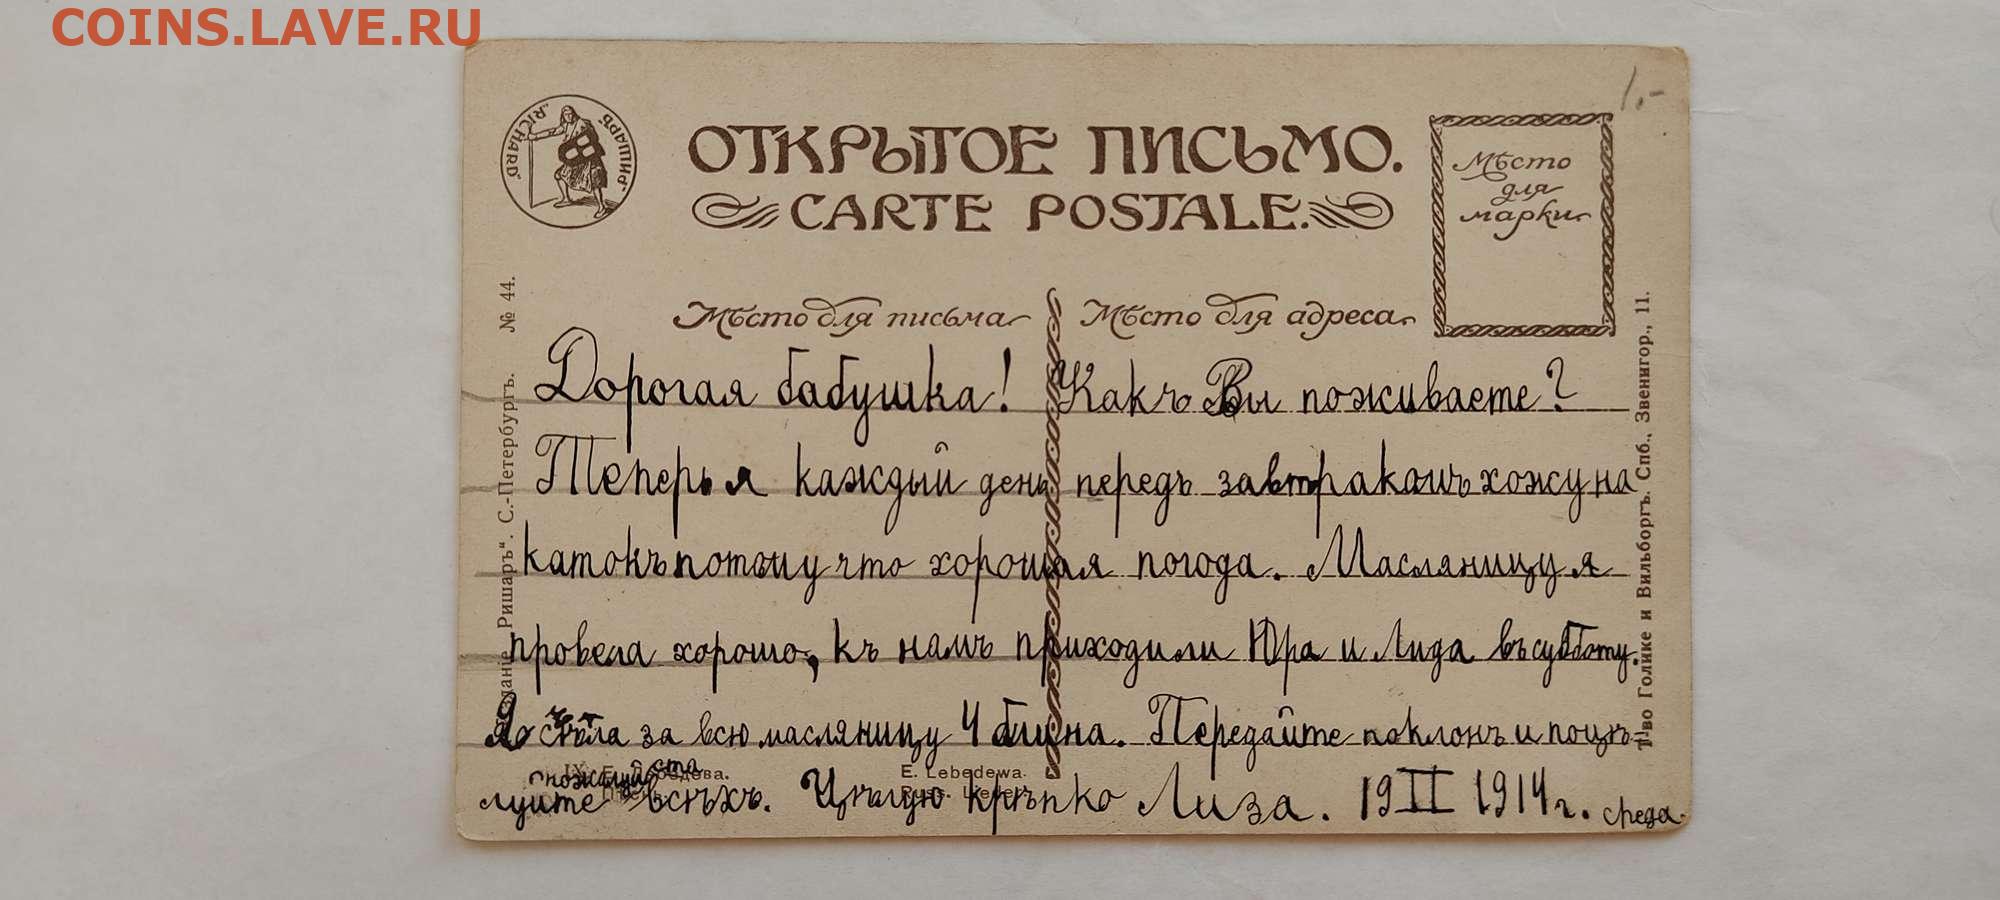 COINS.LAVE.RU
1.-
„РИШАРЪ“
„RICHARD“
ОТКРЫТОЕ ПИСЬМО.
CARTE POSTALE.
Мѣсто
для
марки
Мѣсто для письма
Мѣсто для адреса
Дорогая бабушка! Какъ Вы поживаете?
Теперь я каждый день передъ завтракомъ хожу на
катокъ потому что хорошая погода. Масляницу я
провела хорошо, къ намъ приходили Юра и Лида въ субботу.
Я съѣла за всю масляницу 4 блина. Передайте поклонъ и поцѣ-
пожалуйста
луйте всѣхъ. Цѣлую крѣпко Лиза. 19 II 1914 г. среда.
E. Lebedewa.
Изданіе „Ришаръ“. С.-Петербургъ. № 44.
Т-во Голике и Вильборгъ. Спб., Звенигор., 11.